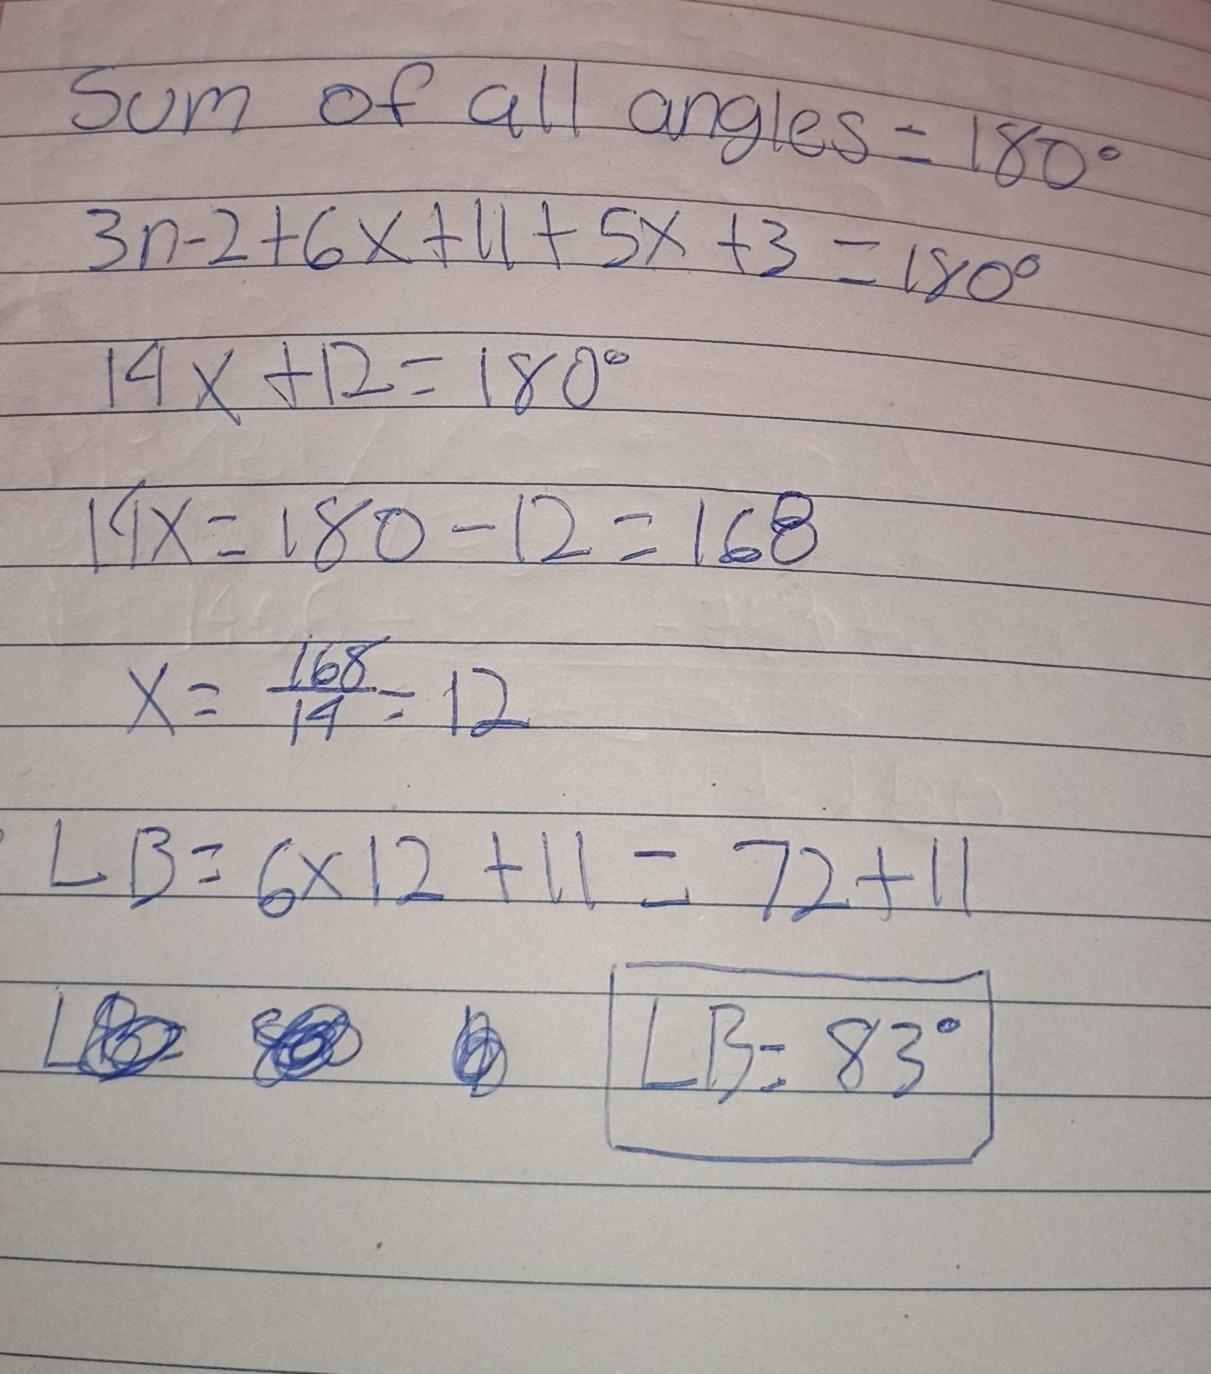 Sum of all angles = 180°
3n-2+6x+11+5x+3=180°
14x+12=180°
14x=180-12=168
x=168/14=12
LB=6x12+11=72+11
LB=83°